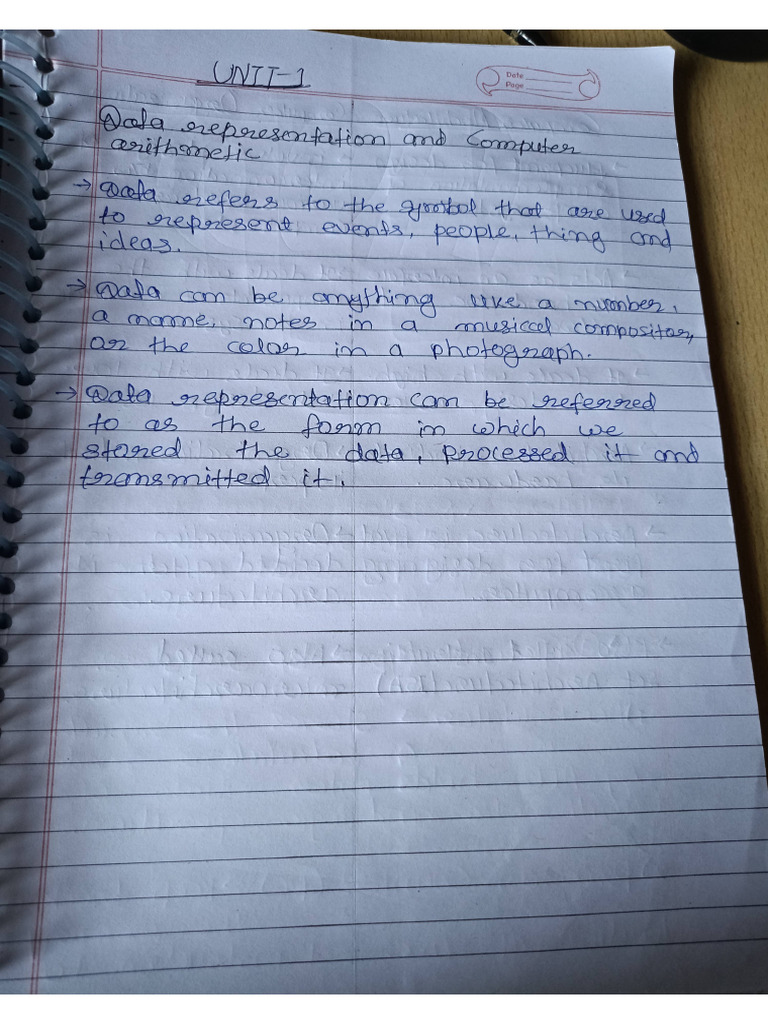 UNIT-1
Date
Page
Data representation and Computer
arithmetic
→ Data refers to the symbol that are used
to represent events, people, thing and
ideas.
→ Data can be anything like a number,
a name, notes in a musical compositor,
or the color in a photograph.
→ Data representation can be referred
to as the form in which we
stored the data, processed it and
transmitted it.